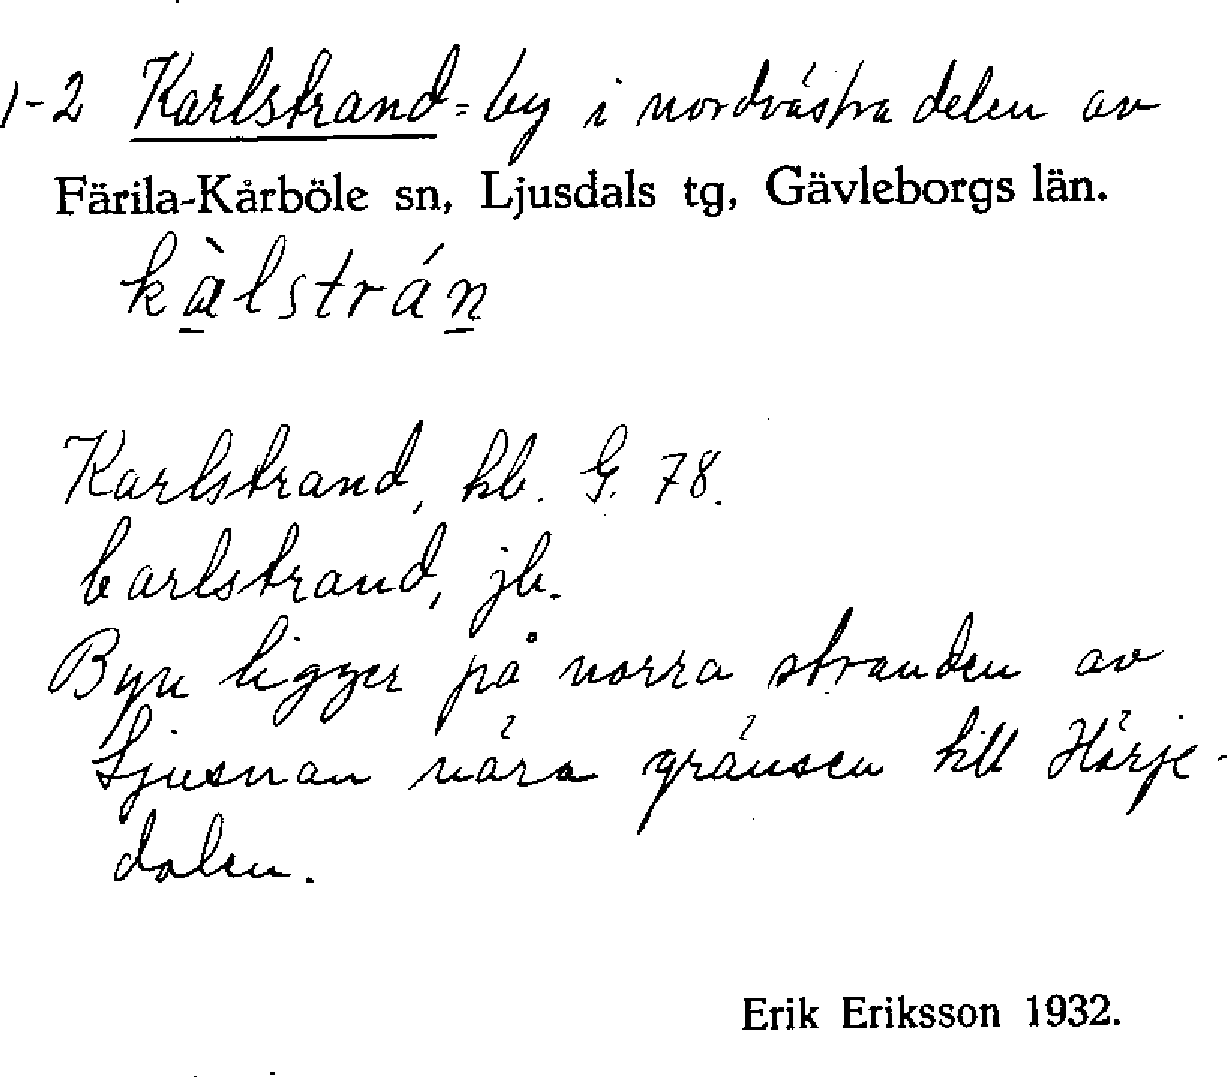 1-2 Karlstrand = by i nordvästra delen av
Färila-Kårböle sn, Ljusdals tg, Gävleborgs län.
kàlstrán
Karlstrand, kb. G. 78.
Carlstrand, jb.
Byn ligger på norra stranden av
Ljusnan nära gränsen till Härje-
dalen.
Erik Eriksson 1932.